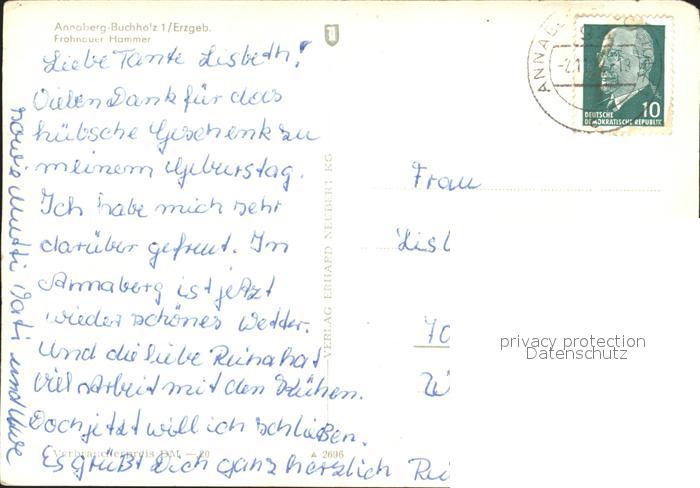 Annaberg-Buchholz 1/Erzgeb.
Frohnauer Hammer
Liebe Tante Lisbeth!
Vielen Dank für das
hübsche Geschenk zu
meinem Geburstag.
Ich habe mich sehr
darüber gefreut. In
Annaberg ist jetzt
wieder schönes Wetter.
Und die liebe Reina hat
viel Arbeit mit den Kühen.
Doch jetzt will ich schließen.
Es grüßt Dich ganz herzlich Rei
sowie Mutti Vati und Uwe
Verbraucherpreis DM — 20
A 2696
VERLAG ERHARD NEUBERT KG
ANNABE
-2.11
10
DEUTSCHE
DEMOKRATISCHE REPUBLIK
Frau
Lisb
70
privacy protection
Datenschutz